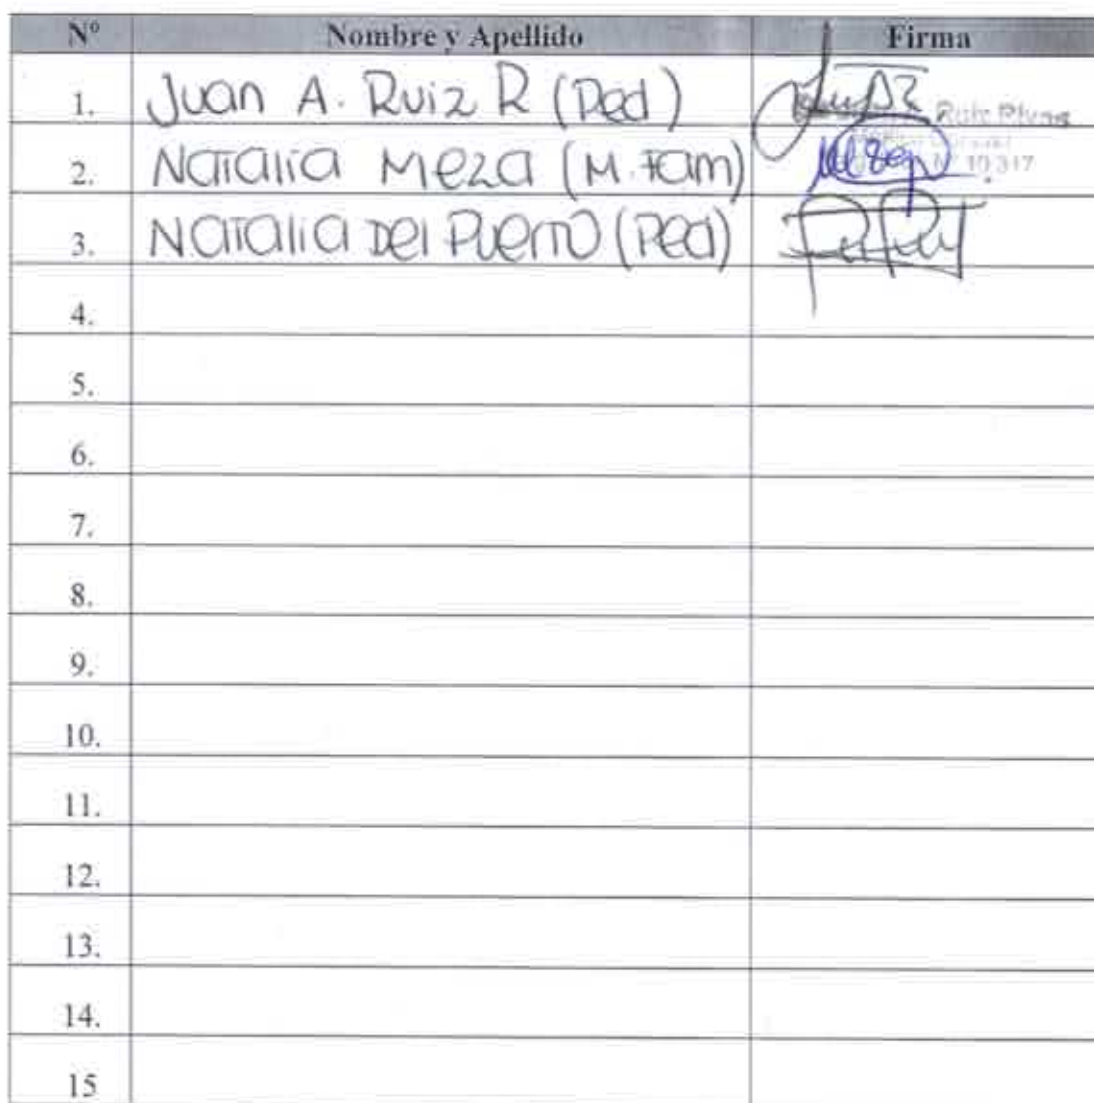 Nº Nombre y Apellido Firma
1. Juan A. Ruiz R (Ped) Ruiz Rivas
2. Natalia Meza (M. Fam) 10.317
3. Natalia Del Puerto (Ped)
4.
5.
6.
7.
8.
9.
10.
11.
12.
13.
14.
15